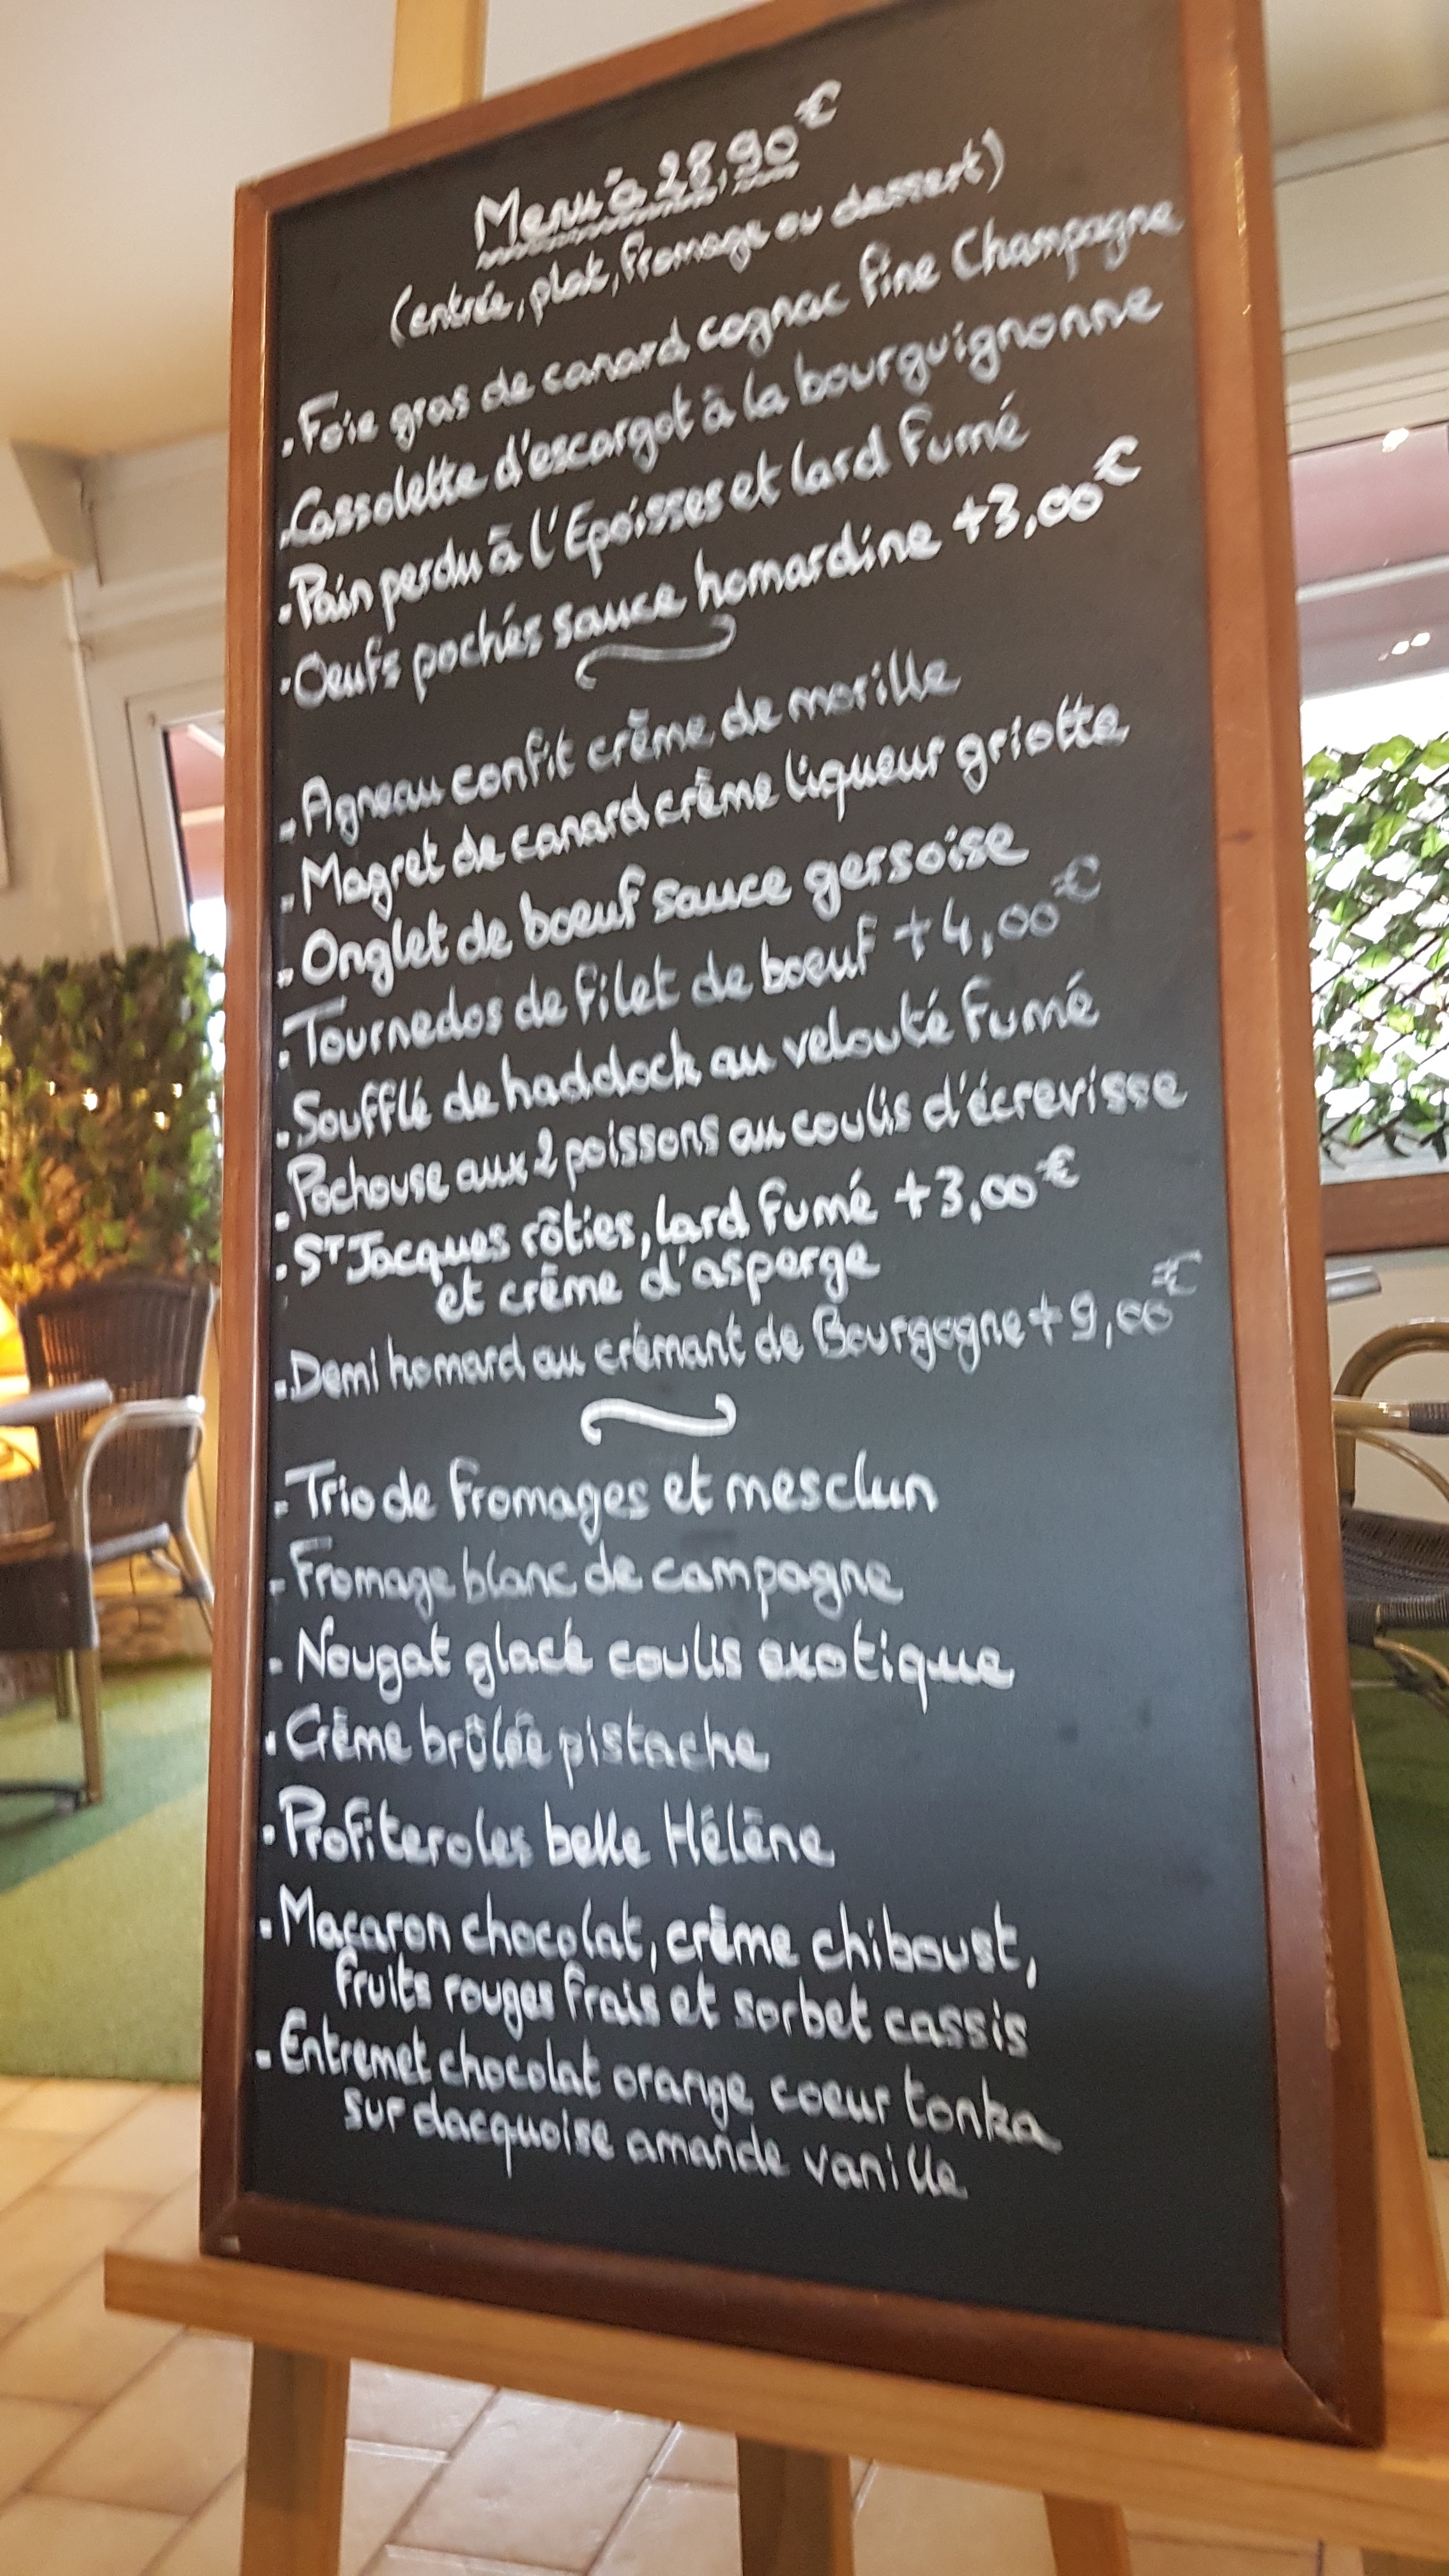 Menu à 28,90€
(entrée, plat, fromage ou dessert)
. Foie gras de canard cognac fine Champagne
. Cassolette d'escargot à la bourguignonne
. Pain perdu à l'Epoisses et lard fumé
. Oeufs pochés sauce homardine +3,00€
. Agneau confit crème de morille
. Magret de canard crème liqueur griotte
. Onglet de boeuf sauce gersoise
. Tournedos de filet de boeuf +4,00€
. Soufflé de haddock au velouté fumé
. Pochouse aux 2 poissons au coulis d'écrevisse
. St Jacques rôties, lard fumé +3,00€
et crème d'asperge
. Demi homard au crémant de Bourgogne + 9,00€
. Trio de fromages et mesclun
. Fromage blanc de campagne
. Nougat glacé coulis exotique
. Crème brûlée pistache
. Profiteroles belle Hélène
. Macaron chocolat, crème chiboust,
fruits rouges frais et sorbet cassis
. Entremet chocolat orange coeur tonka
sur dacquoise amande vanille